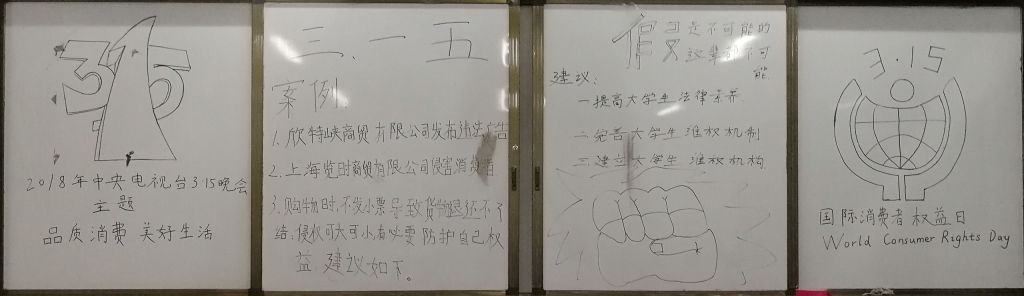 315
2018年中央电视台3·15晚会
主题
品质消费 美好生活
三·一五
案例
1.欣特峡商贸有限公司发布违法广告
2.上海览时商贸有限公司侵害消费者
3.购物时,不发小票导致货物退还不了
结:侵权可大可小,有必要防护自己权
益,建议如下。
假 是不可能的
这辈子不可
能
建议:
一提高大学生法律素养
二完善大学生维权机制
三建立大学生维权机构
3·15
国际消费者权益日
World Consumer Rights Day